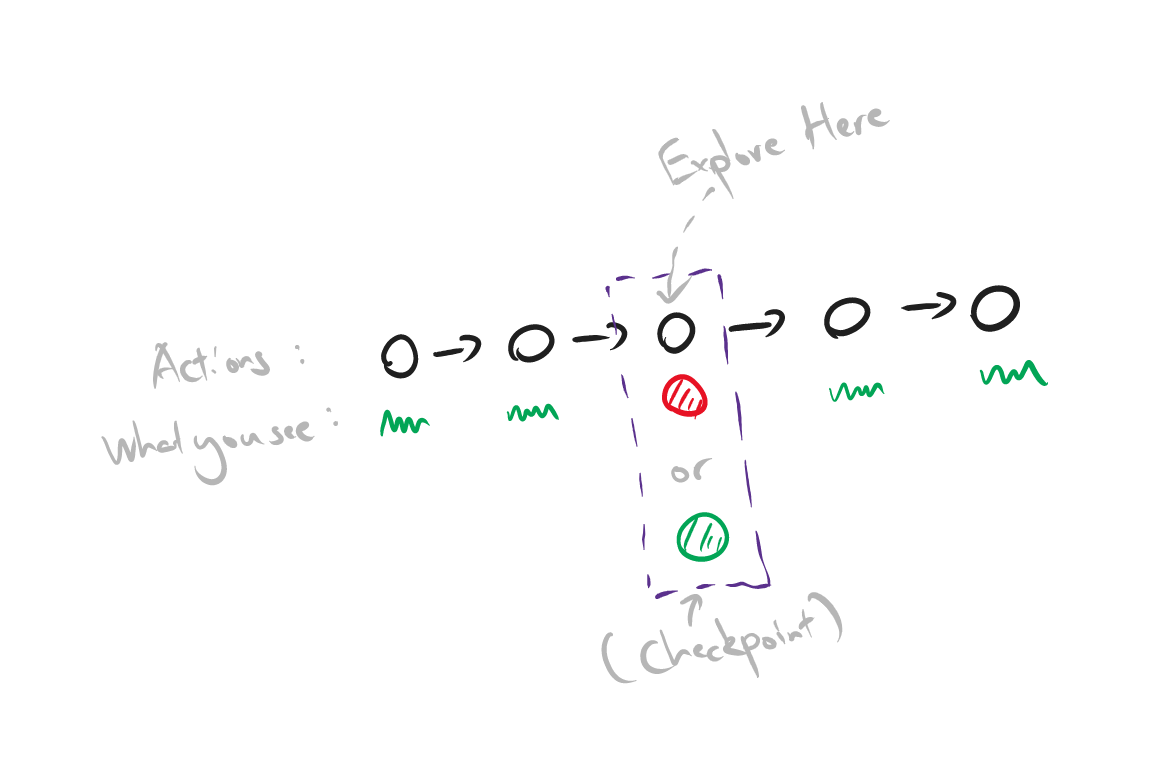 Explore Here
Actions :
What you see :
or
(Checkpoint)